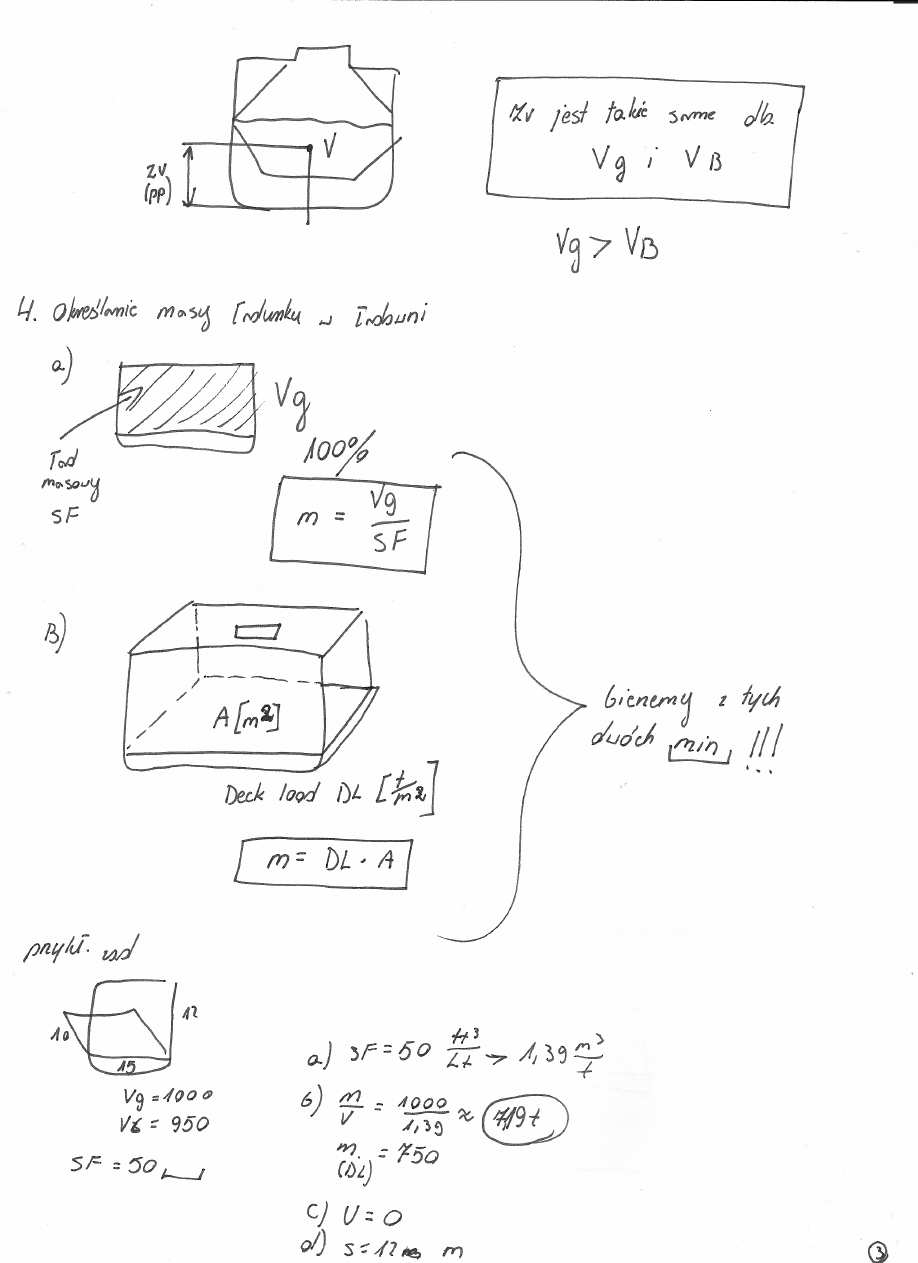 V
zv
(pp)
zv jest takie same dla
Vg i VB
Vg > VB
4. Określanie masy ładunku w ładowni
a)
Vg
Ład
masowy
SF
100%
m = Vg / SF
B)
A [m²]
Deck load DL [t/m²]
m = DL · A
bierzemy z tych
dwóch min !!!
przykł. zad
10
12
15
Vg = 1000
VB = 950
SF = 50
a) SF = 50 ft³/Lt → 1,39 m³/t
b) m/V = 1000/1,39 ≈ 719 t
m (DL) = 750
c) U = 0
d) s = 12 m
3